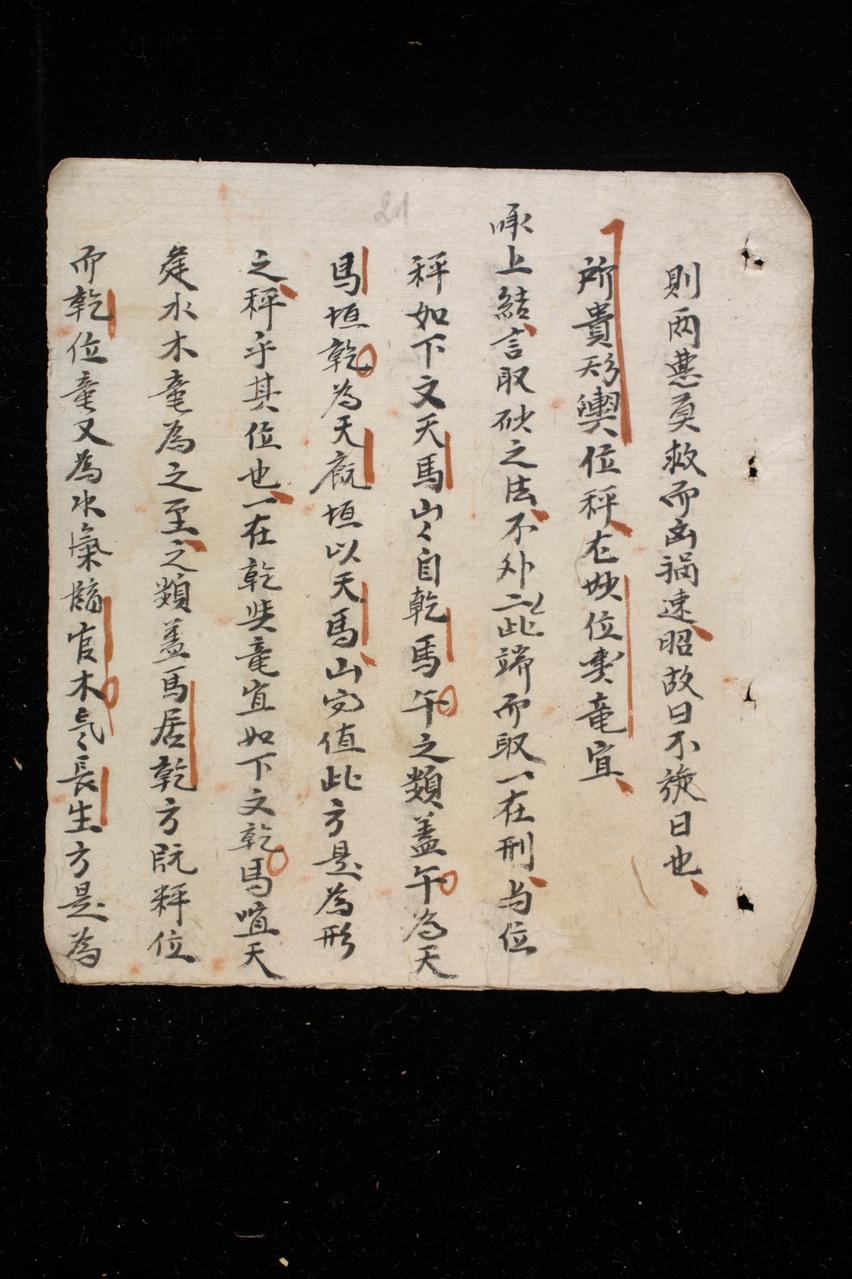 21
則两𠀋莫救而凶禍速昭故曰不旋日也
所貴形輿位秤在 位 竜宜
承上結言取砂之法不外二此端而取一在刑与位
秤如下文天馬山〻自乾馬午之類盖午為天
馬垣乾為天廐垣以天馬山 值此方是為形
之秤乎其位也一在乾 竜宜如下文乾馬喧天
水木竜為之至之類盖馬居乾方既秤位
而乾位竜又為水氣臨官木气長生方是為